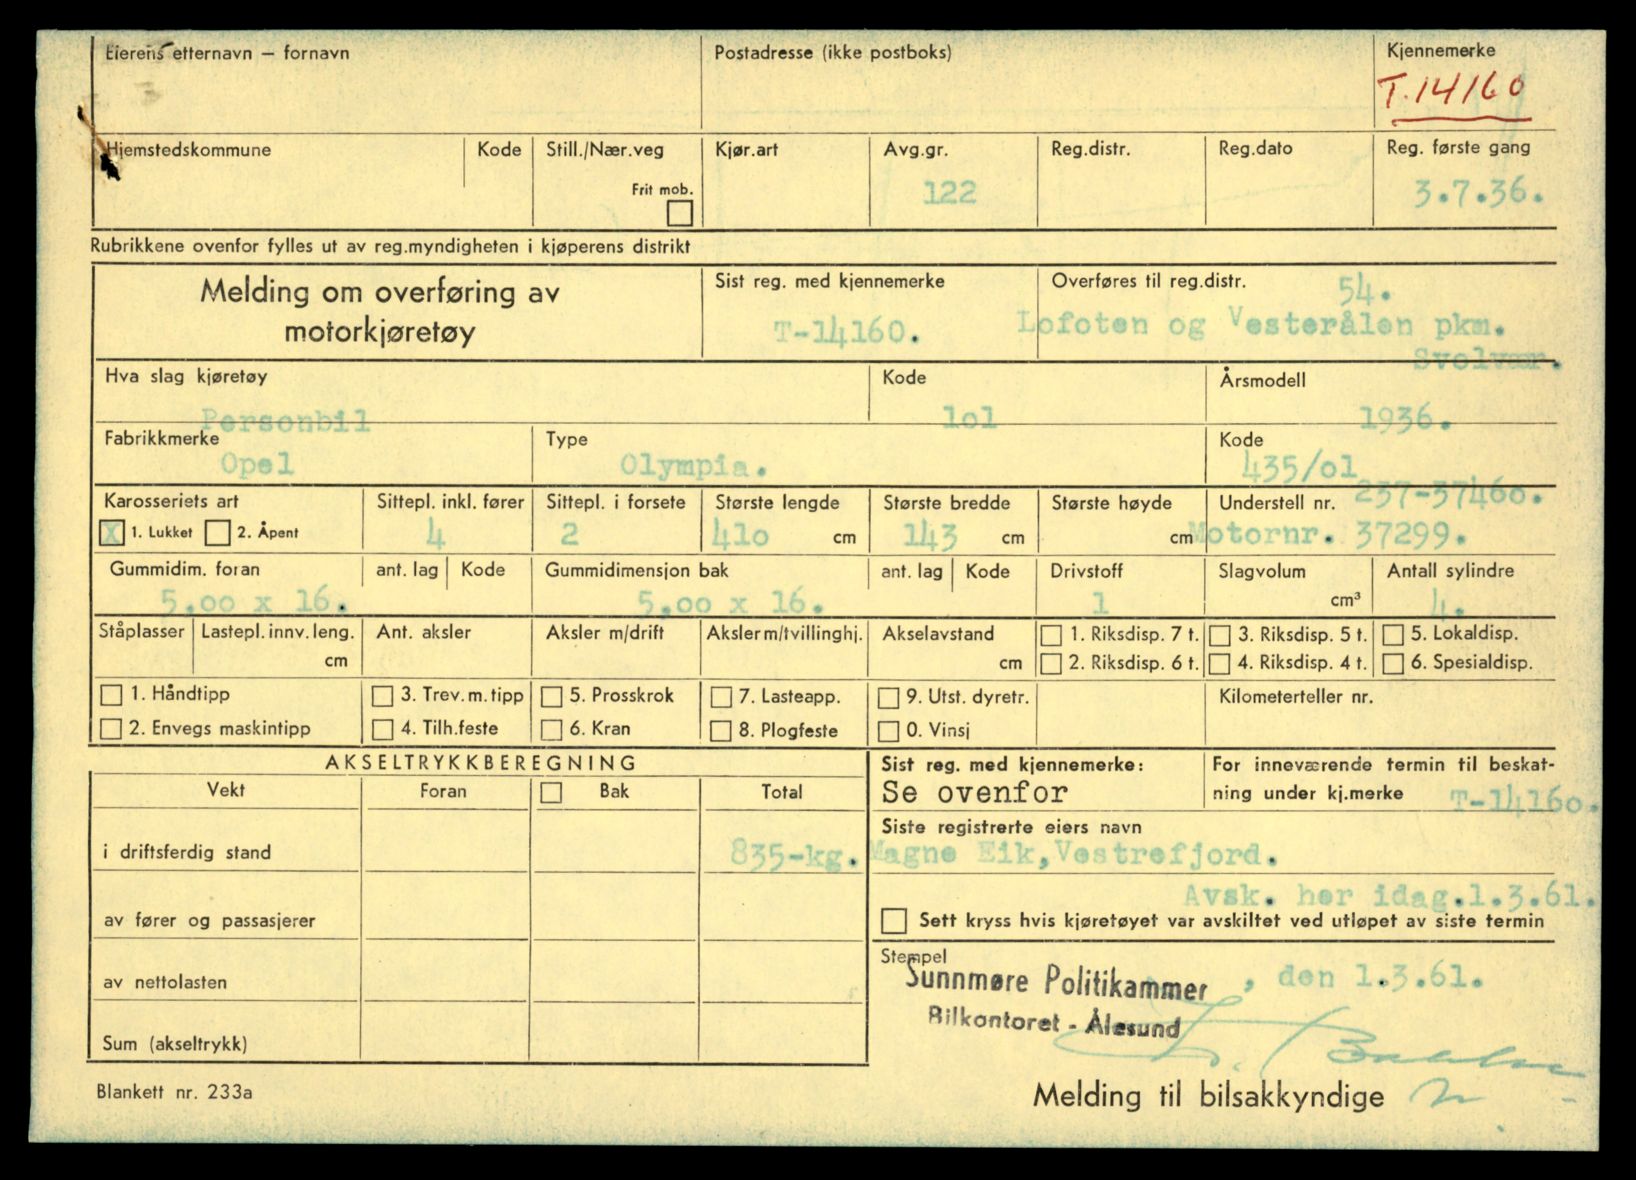 Eierens etternavn – fornavn
Postadresse (ikke postboks)
Kjennemerke
T.14160
Hjemstedskommune
Kode
Still./Nær.veg
Frit mob.
Kjør.art
Avg.gr.
122
Reg.distr.
Reg.dato
Reg. første gang
3.7.36.
Rubrikkene ovenfor fylles ut av reg.myndigheten i kjøperens distrikt
Melding om overføring av
motorkjøretøy
Sist reg. med kjennemerke
T-14160.
Overføres til reg.distr.
54.
Lofoten og Vesterålen pkm.
Svolvær.
Hva slag kjøretøy
Personbil
Kode
lol
Årsmodell
1936.
Fabrikkmerke
Opel
Type
Olympia.
Kode
435/ol
Karosseriets art
X 1. Lukket 2. Åpent
Sittepl. inkl. fører
4
Sittepl. i forsete
2
Største lengde
41o cm
Største bredde
143 cm
Største høyde
cm
Understell nr. 237-3746o.
Motornr. 37299.
Gummidim. foran
5.oo x 16.
ant. lag
Kode
Gummidimensjon bak
5.oo x 16.
ant. lag
Kode
Drivstoff
1
Slagvolum
cm³
Antall sylindre
4.
Ståplasser
Lastepl. innv. leng.
cm
Ant. aksler
Aksler m/drift
Aksler m/tvillinghj.
Akselavstand
cm
1. Riksdisp. 7 t.
2. Riksdisp. 6 t.
3. Riksdisp. 5 t.
4. Riksdisp. 4 t.
5. Lokaldisp.
6. Spesialdisp.
1. Håndtipp
2. Envegs maskintipp
3. Trev. m. tipp
4. Tilh.feste
5. Prosskrok
6. Kran
7. Lasteapp.
8. Plogfeste
9. Utst. dyretr.
0. Vinsj
Kilometerteller nr.
AKSELTRYKKBEREGNING
Vekt
Foran
Bak
Total
i driftsferdig stand
835-kg.
av fører og passasjerer
av nettolasten
Sum (akseltrykk)
Sist reg. med kjennemerke:
Se ovenfor
For inneværende termin til beskat-
ning under kj.merke T-1416o.
Siste registrerte eiers navn
Magne Eik, Vestrefjord.
Avsk. her idag.1.3.61.
Sett kryss hvis kjøretøyet var avskiltet ved utløpet av siste termin
Stempel
Sunnmøre Politikammer, den 1.3.61.
Bilkontoret - Ålesund
Blankett nr. 233a
Melding til bilsakkyndige